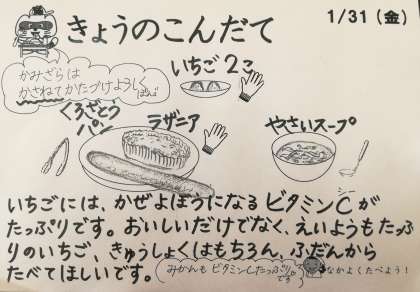 きょうのこんだて
1/31（金）
かみざらは
かさねてかたづけようしく
いちご2こ
くろざとう
パン
ラザニア
やさいスープ
いちごには、かぜよぼうになるビタミンCが
シー
たっぷりです。おいしいだけでなく、えいようもたっぷ
りのいちご、きゅうしょくはもちろん、ふだんから
たべてほしいです。
みかんもビタミンCたっぷり。
です
なかよくたべよう！